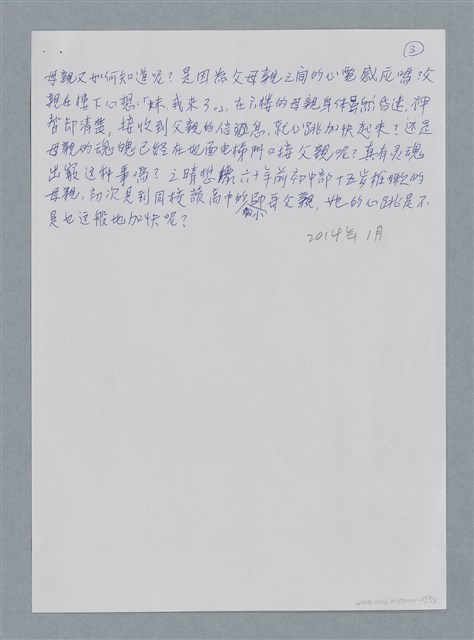 ③
母親又如何知道呢？是因為父母親之间的心電感应嗎？父
親在樓下心想：「妹，我來了。」在六樓的母親身体虽然昏迷，神
智却清楚，接收到父親的信息，就心跳加快起來？还是
母親的魂魄已經在地面电梯門口接父親呢？真有灵魂
出竅这件事嗎？立晴想，六十年前初中部十五岁稚嫩的
母親，初次見到同校讀高中的帥哥父親，她的心跳是不
是也这般地加快呢？
2014年1月